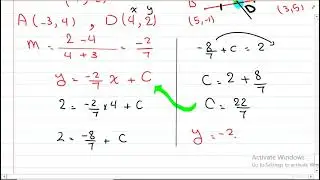 x y
(5,-1)
(3,5)
D
A(-3,4), D(4,2)
m = 2-4/4+3 = -2/7
y = -2/7 x + C
2 = -2/7 × 4 + C
2 = -8/7 + C
-8/7 + C = 2
C = 2 + 8/7
C = 22/7
y = -2
Activate Windows
Go to Settings to activate Windows